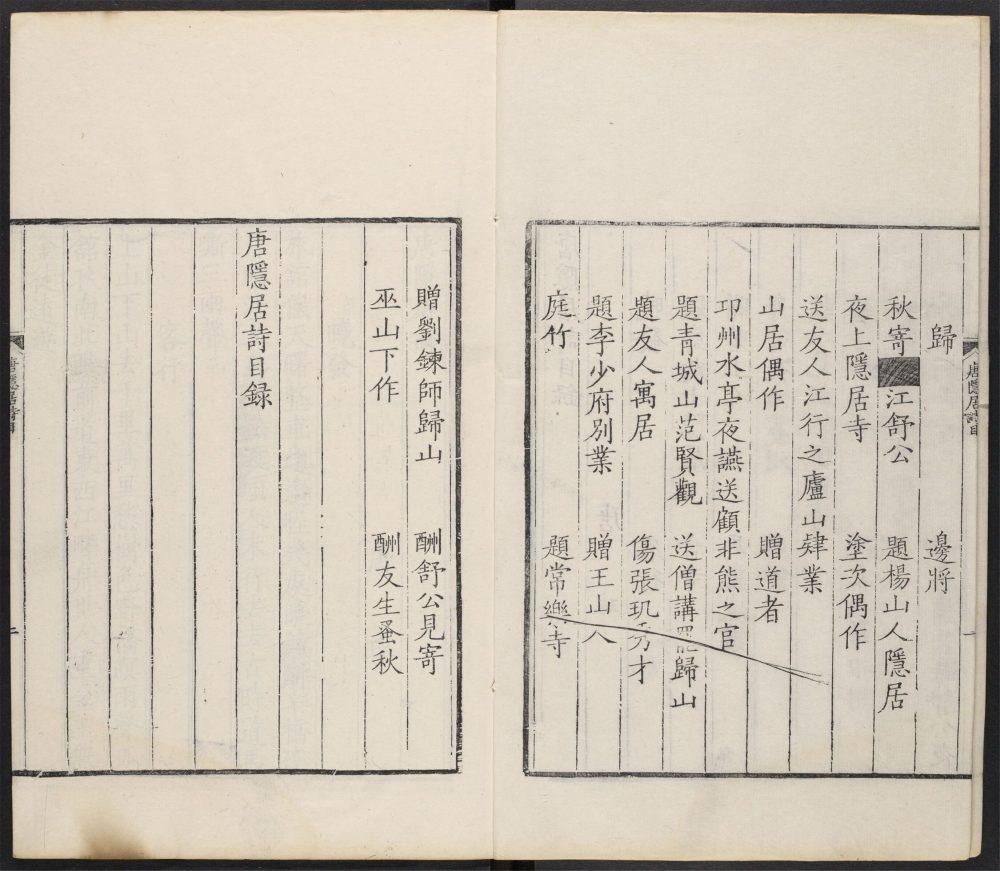 歸 邊將
秋寄 江舒公 題楊山人隱居
夜上隱居寺 塗次偶作
送友人江行之廬山肄業
山居偶作 贈道者
卭州水亭夜讌送顧非熊之官
題青城山范賢觀 送僧講罷歸山
題友人寓居 傷張玘秀才
題李少府別業 贈王山人
庭竹 題常樂寺
唐隱居詩目
一
贈劉鍊師歸山 酬舒公見寄
巫山下作 酬友生蚤秋
唐隱居詩目録
唐隱居詩目
二